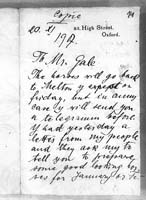 Copie
22. High Street.
Oxford.
To Mr. Gale
The horses will go back
to Melton I expect on
friday, but in any
case I will send you
a telegram before.
I had yesterday a
letter from my people
and they ask my to
tell you to prepare
some good looking hor
ses for January for to